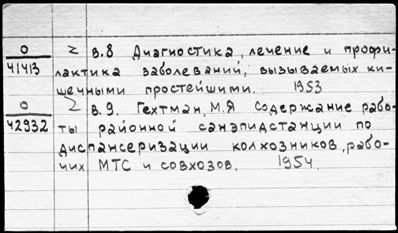 О/41413 z в.8 Диагностика, лечение и профи-
лактика заболеваний, вызываемых ки-
шечными простейшими. 1953
О/42932 z в.9. Гехтман, М.Я Содержание рабо-
ты районной санэпидстанции по
диспансеризации колхозников, рабо-
чих МТС и совхозов. 1954.